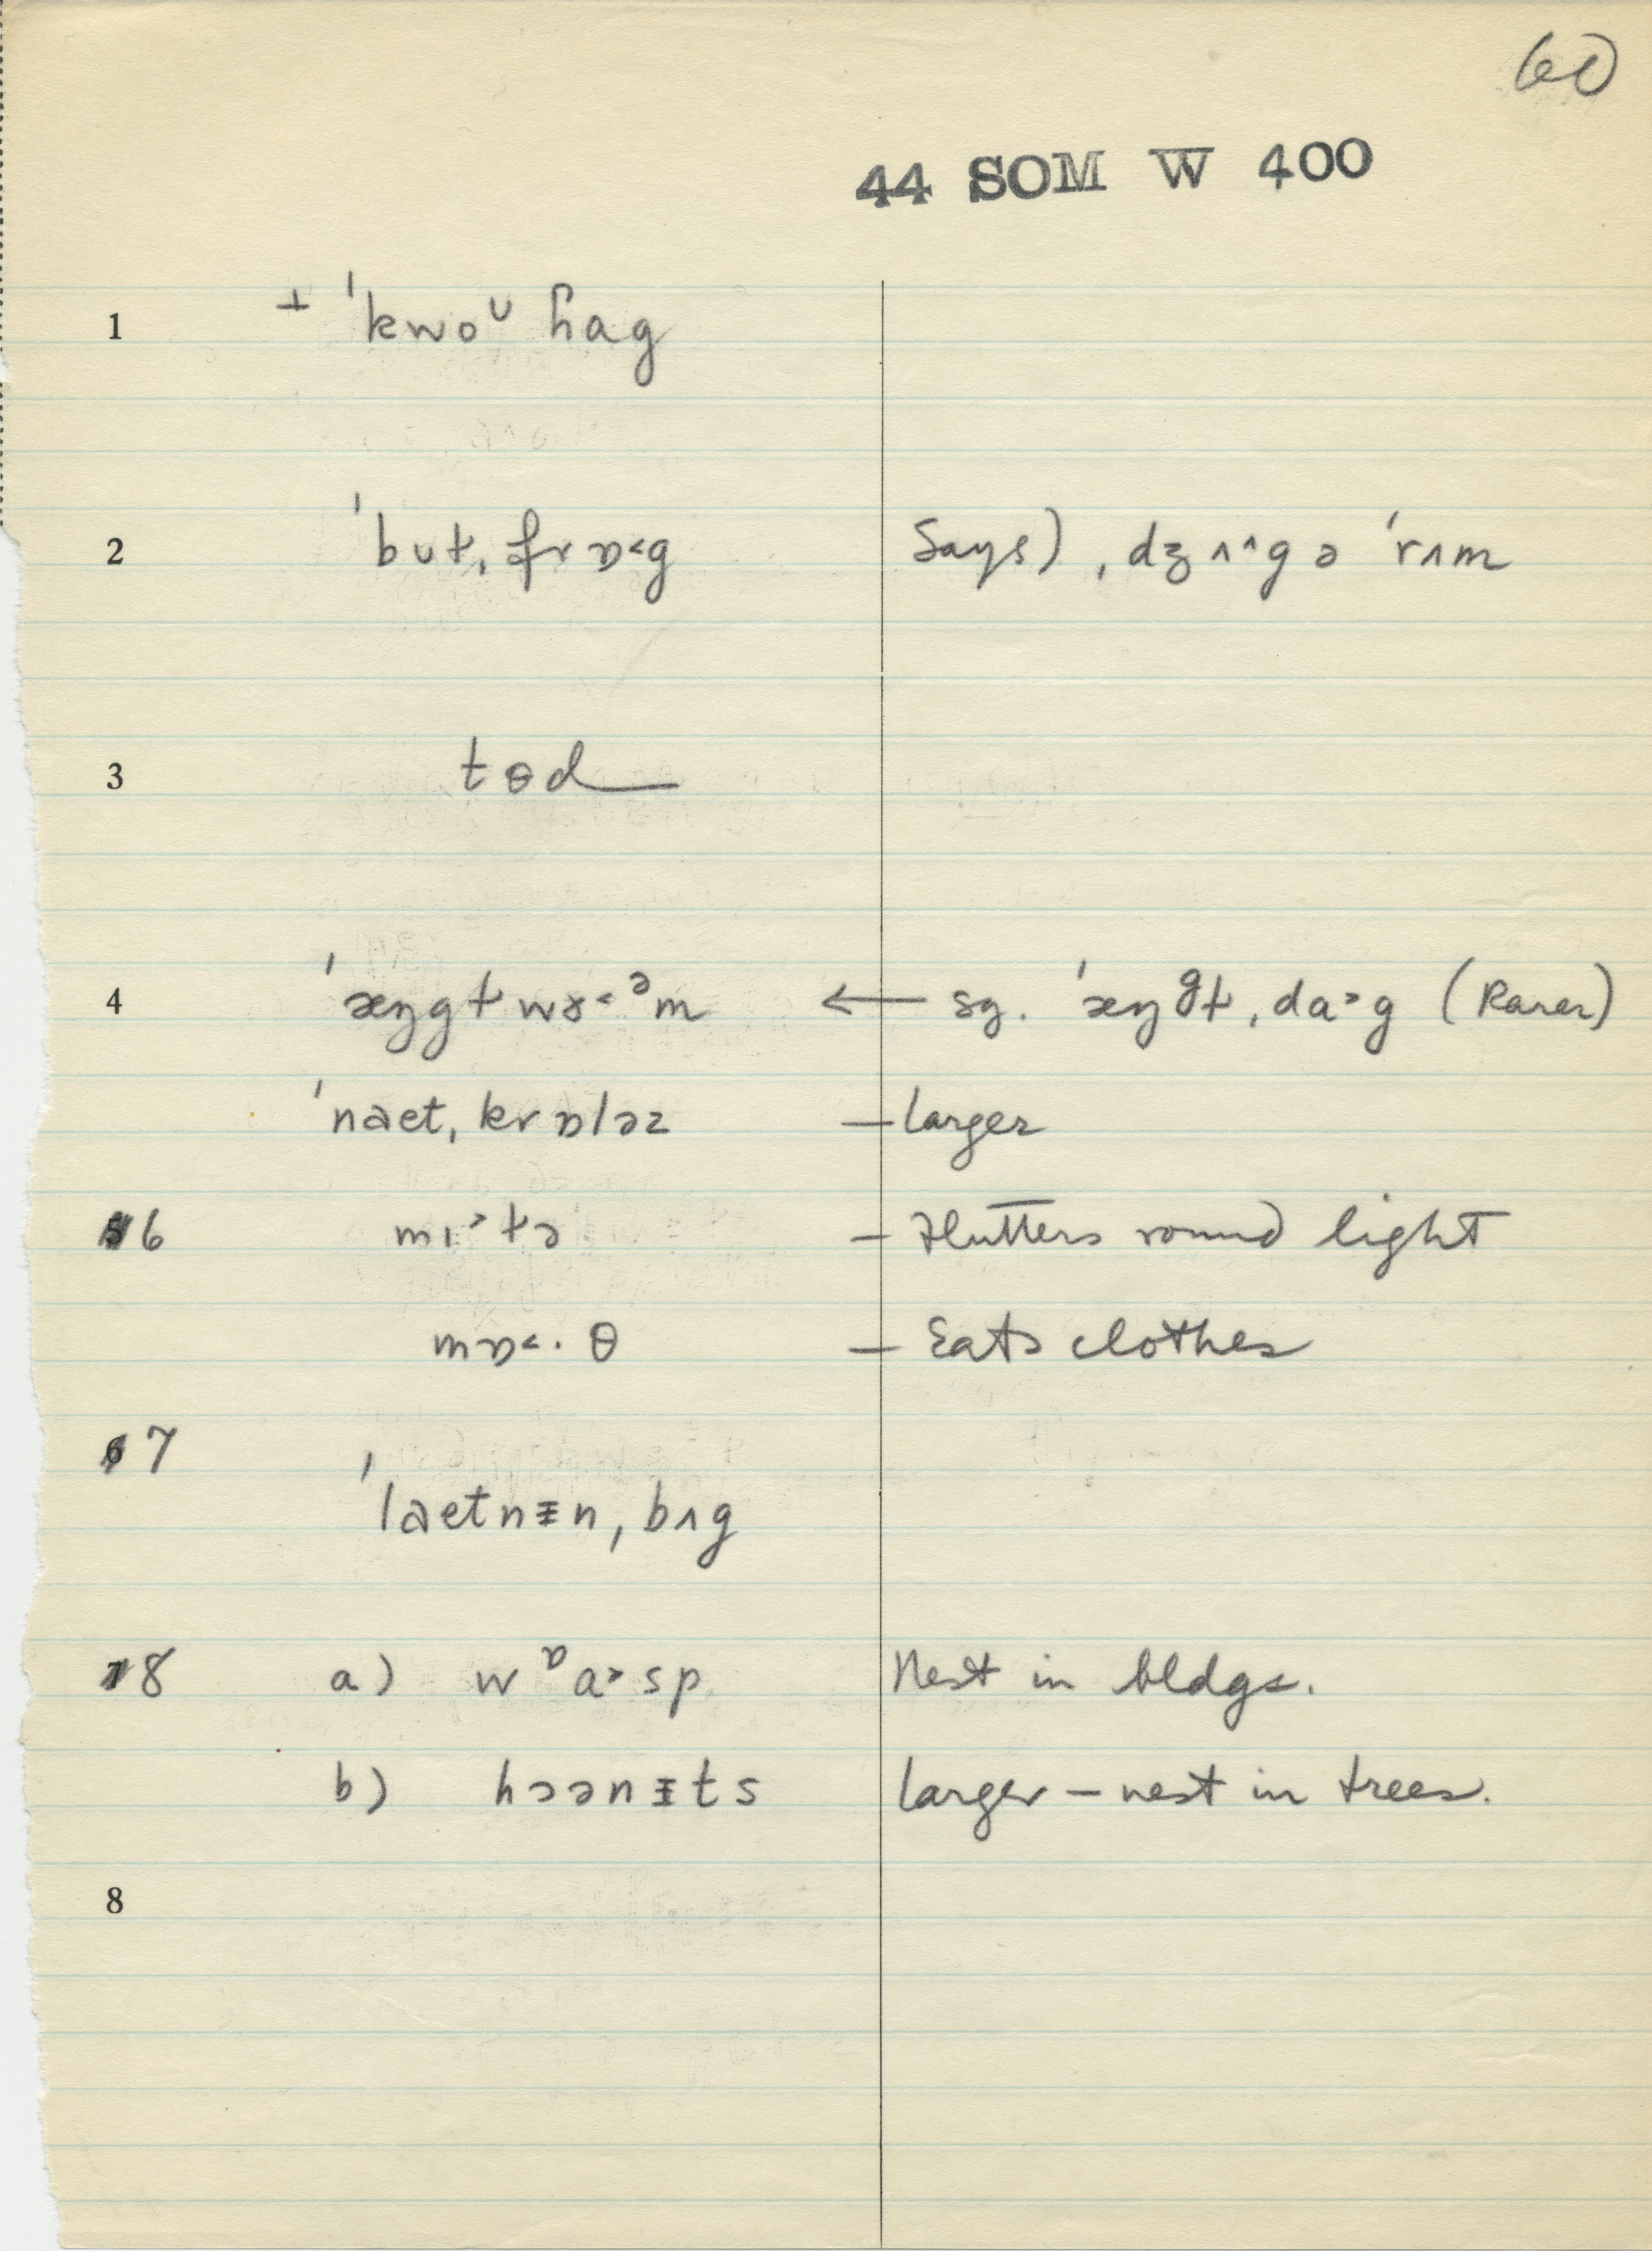 60
44 SOM W 400
1 ⊥ ˈkwoᶷ ɦag
2 ˈbuƚ, frɒ<g Says), dʒʌ^gə ˈrʌm
3 tɵd
4 ˈæŋgƚwɤ<ᵊm ← sg. ˈæŋᵍƚ, da>g (Rarer)
ˈnaet, krɒləz — larger
5 6 mı>ƚə — Flutters round light
mɒ<·θ — Eats clothes
6 7
ˈlaetnɪn, bʌg
7 8 a) wᶛa>sp Nest in bldgs.
b) hɔənɪts larger — nest in trees.
8